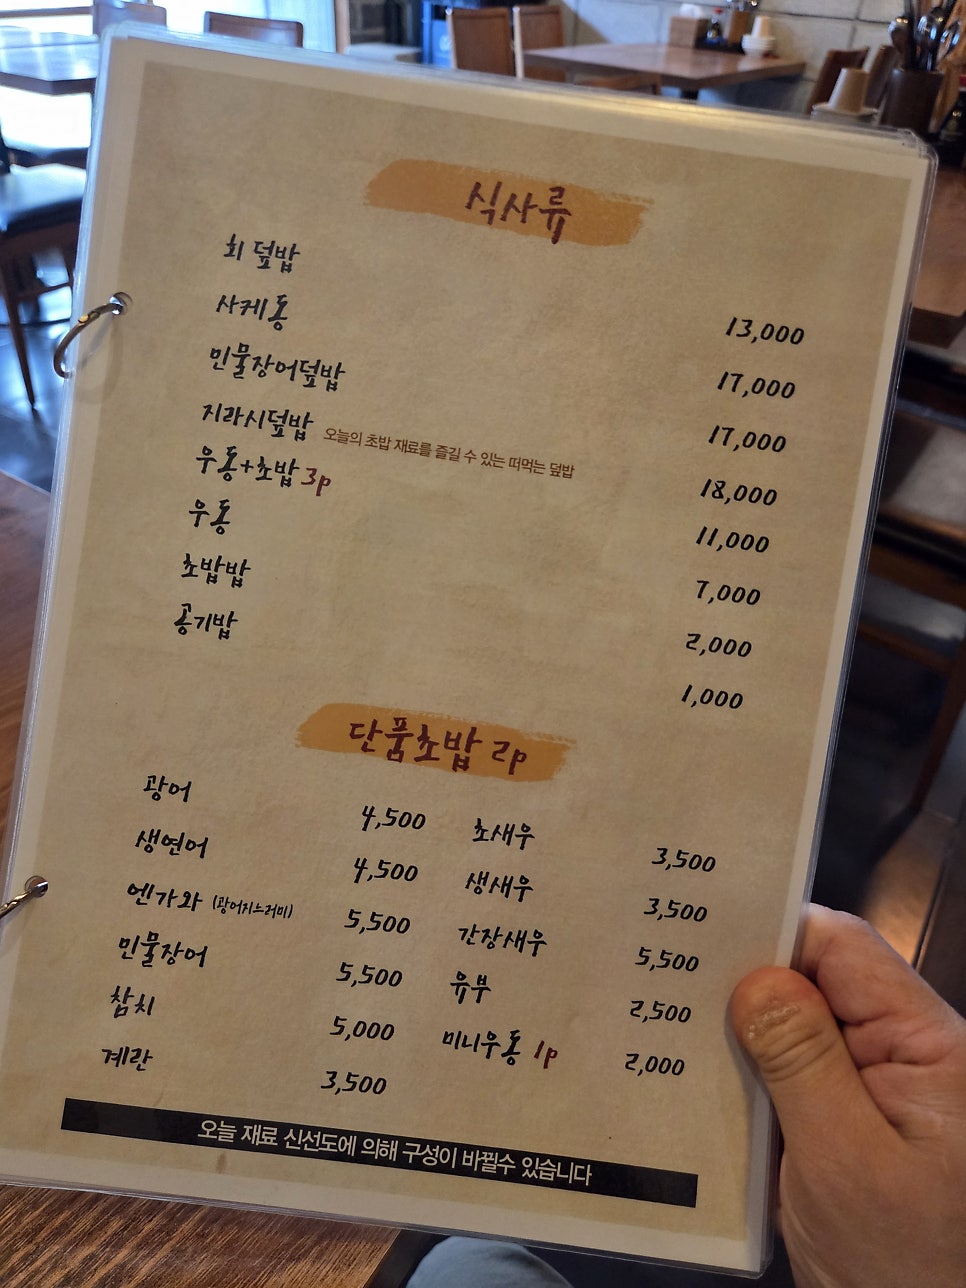 식사류
회 덮밥 13,000
사케동 17,000
민물장어덮밥 17,000
지라시덮밥 오늘의 초밥 재료를 즐길 수 있는 떠먹는 덮밥 18,000
우동+초밥 3p 11,000
우동 7,000
초밥밥 2,000
공기밥 1,000
단품초밥 2p
광어 4,500 초새우 3,500
생연어 4,500 생새우 3,500
엔가와 (광어지느러미) 5,500 간장새우 5,500
민물장어 5,500 유부 2,500
참치 5,000 미니우동 1p 2,000
계란 3,500
오늘 재료 신선도에 의해 구성이 바뀔수 있습니다